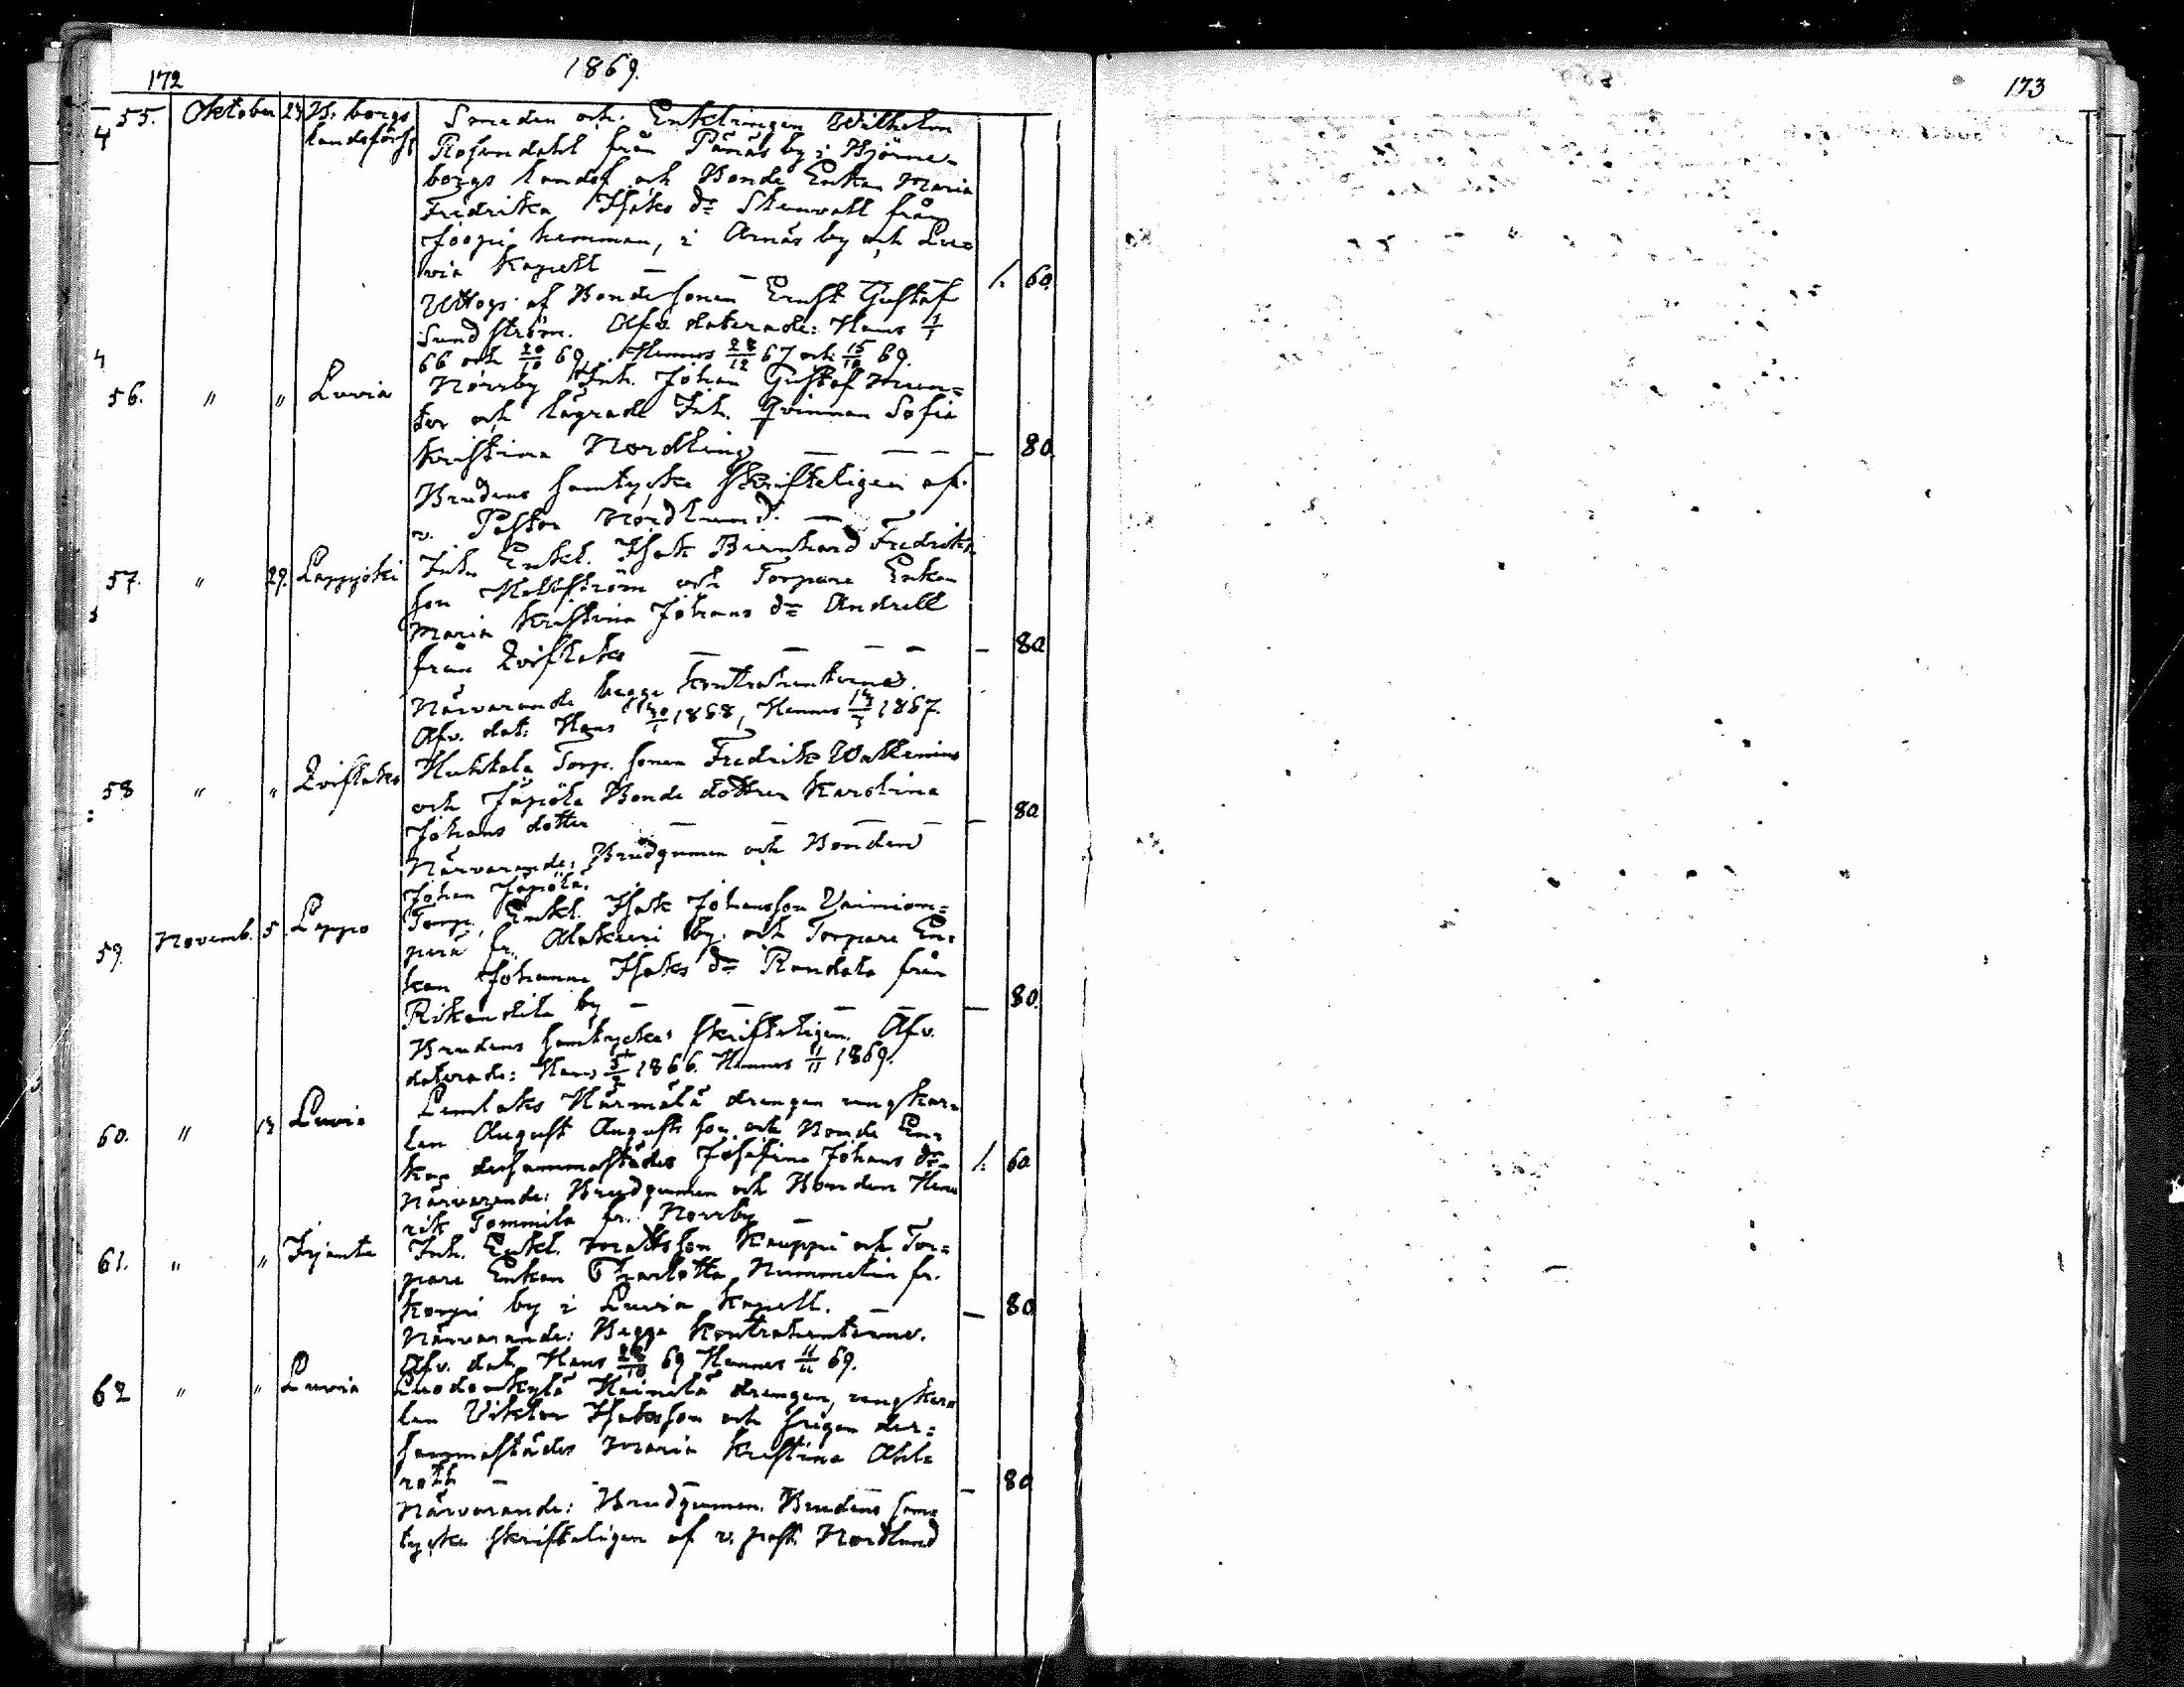 172
1869.
173
55. Oktober 23 B: borgs landsförs: Smeden och Enklingen Wilhelm
Rosendahl från Panäs by i Björne-
borgs landsf. och Bonde Enkan Maria
Fredrika Isaks dr Stenvall från
Joopi hemman, i Arnäs by och Lu=
via Kapell — — — — 1. 60.
Uttogs af Bondesonen Ernst Gustaf
Sundström. Afv. daterade: Hans 1/1
66 och 20/10 69. Hennes 28/12 67 och 15/10 69.
56. " " Luvia Norrby Inh. Johan Gustaf Mun=
ter och lägrade Inh. Qvinnan Sofia
Kristina Nordling — — — — 80.
Brudens samtycke skrifteligen af
v. Pastor Nordlund. —
57. " 29. Lappjoki Inh. Enkl. Isak Bernhard Fredriks
son Hellström och Torpare Enkan
Maria Kristina Johans dr Andrell
från Qvistaks — — — — — 80
Närvarande begge kontrahenterne.
Afv. dat. Hans 1868, Hennes 1867.
58 " " Qviflaks Torp. sonen Fredrik Wallenius
och Jäpölä Bonde dottren Karolina
Johans dotter — — — — — 80
Närvarande: Brudgumen och Bonden
Johan Jäpölä.
59. Novemb. 5 Lappo Torp. Enkl. Isak Johansson Vainiom=
perä fr. by. och Torpare En=
kan Johanna Isaks dr Randala från
by — — — — — 80.
Brudens samtycke: skrifteligen. Afv.
daterade: Hans 1866. Hennes 1/11 1869.
60. " 13 Luvia Lemlaks Härmälä drengen ungkar=
len August Augusts son och Bonde En=
kan dersammastädes Josefina Johans dr — 1. 60
Närvarande: Brudgumen och Bonden Hen=
rik Tommila fr. Norrby —
61. " " Irjanta Inh. Enkl. Mattsson Kauppi och Tor=
pare Enkan Charlotta Nummelin fr.
Korpi by i Luvia Kapell. — — 80
Närvarande: Begge Kontrahenterne.
Afv. dat. Hans 28/10 69 Hennes 11/11 69.
62 " " Luvia Luodonkylä Heinilä drengen, ungkar=
len Viktor Isaksson och pigan der=
sammastädes Maria Kristina Ahl=
roth — — — 80
Närvarande: Brudgumen. Brudens sam=
tycke skrifteligen af v. past. Nordlund